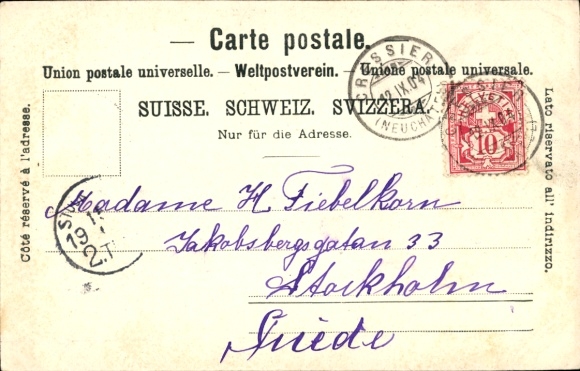 Carte postale.
Union postale universelle. — Weltpostverein. — Unione postale universale.
SUISSE. SCHWEIZ. SVIZZERA.
Nur für die Adresse.
Côté réservé à l'adresse.
Lato riservato all' indirizzo.
CRESSIER
12.IX.04
HELVETIA
10
Madame H Fiebelkorn
Jakobsbergsgatan 33
Stockholm
Suède